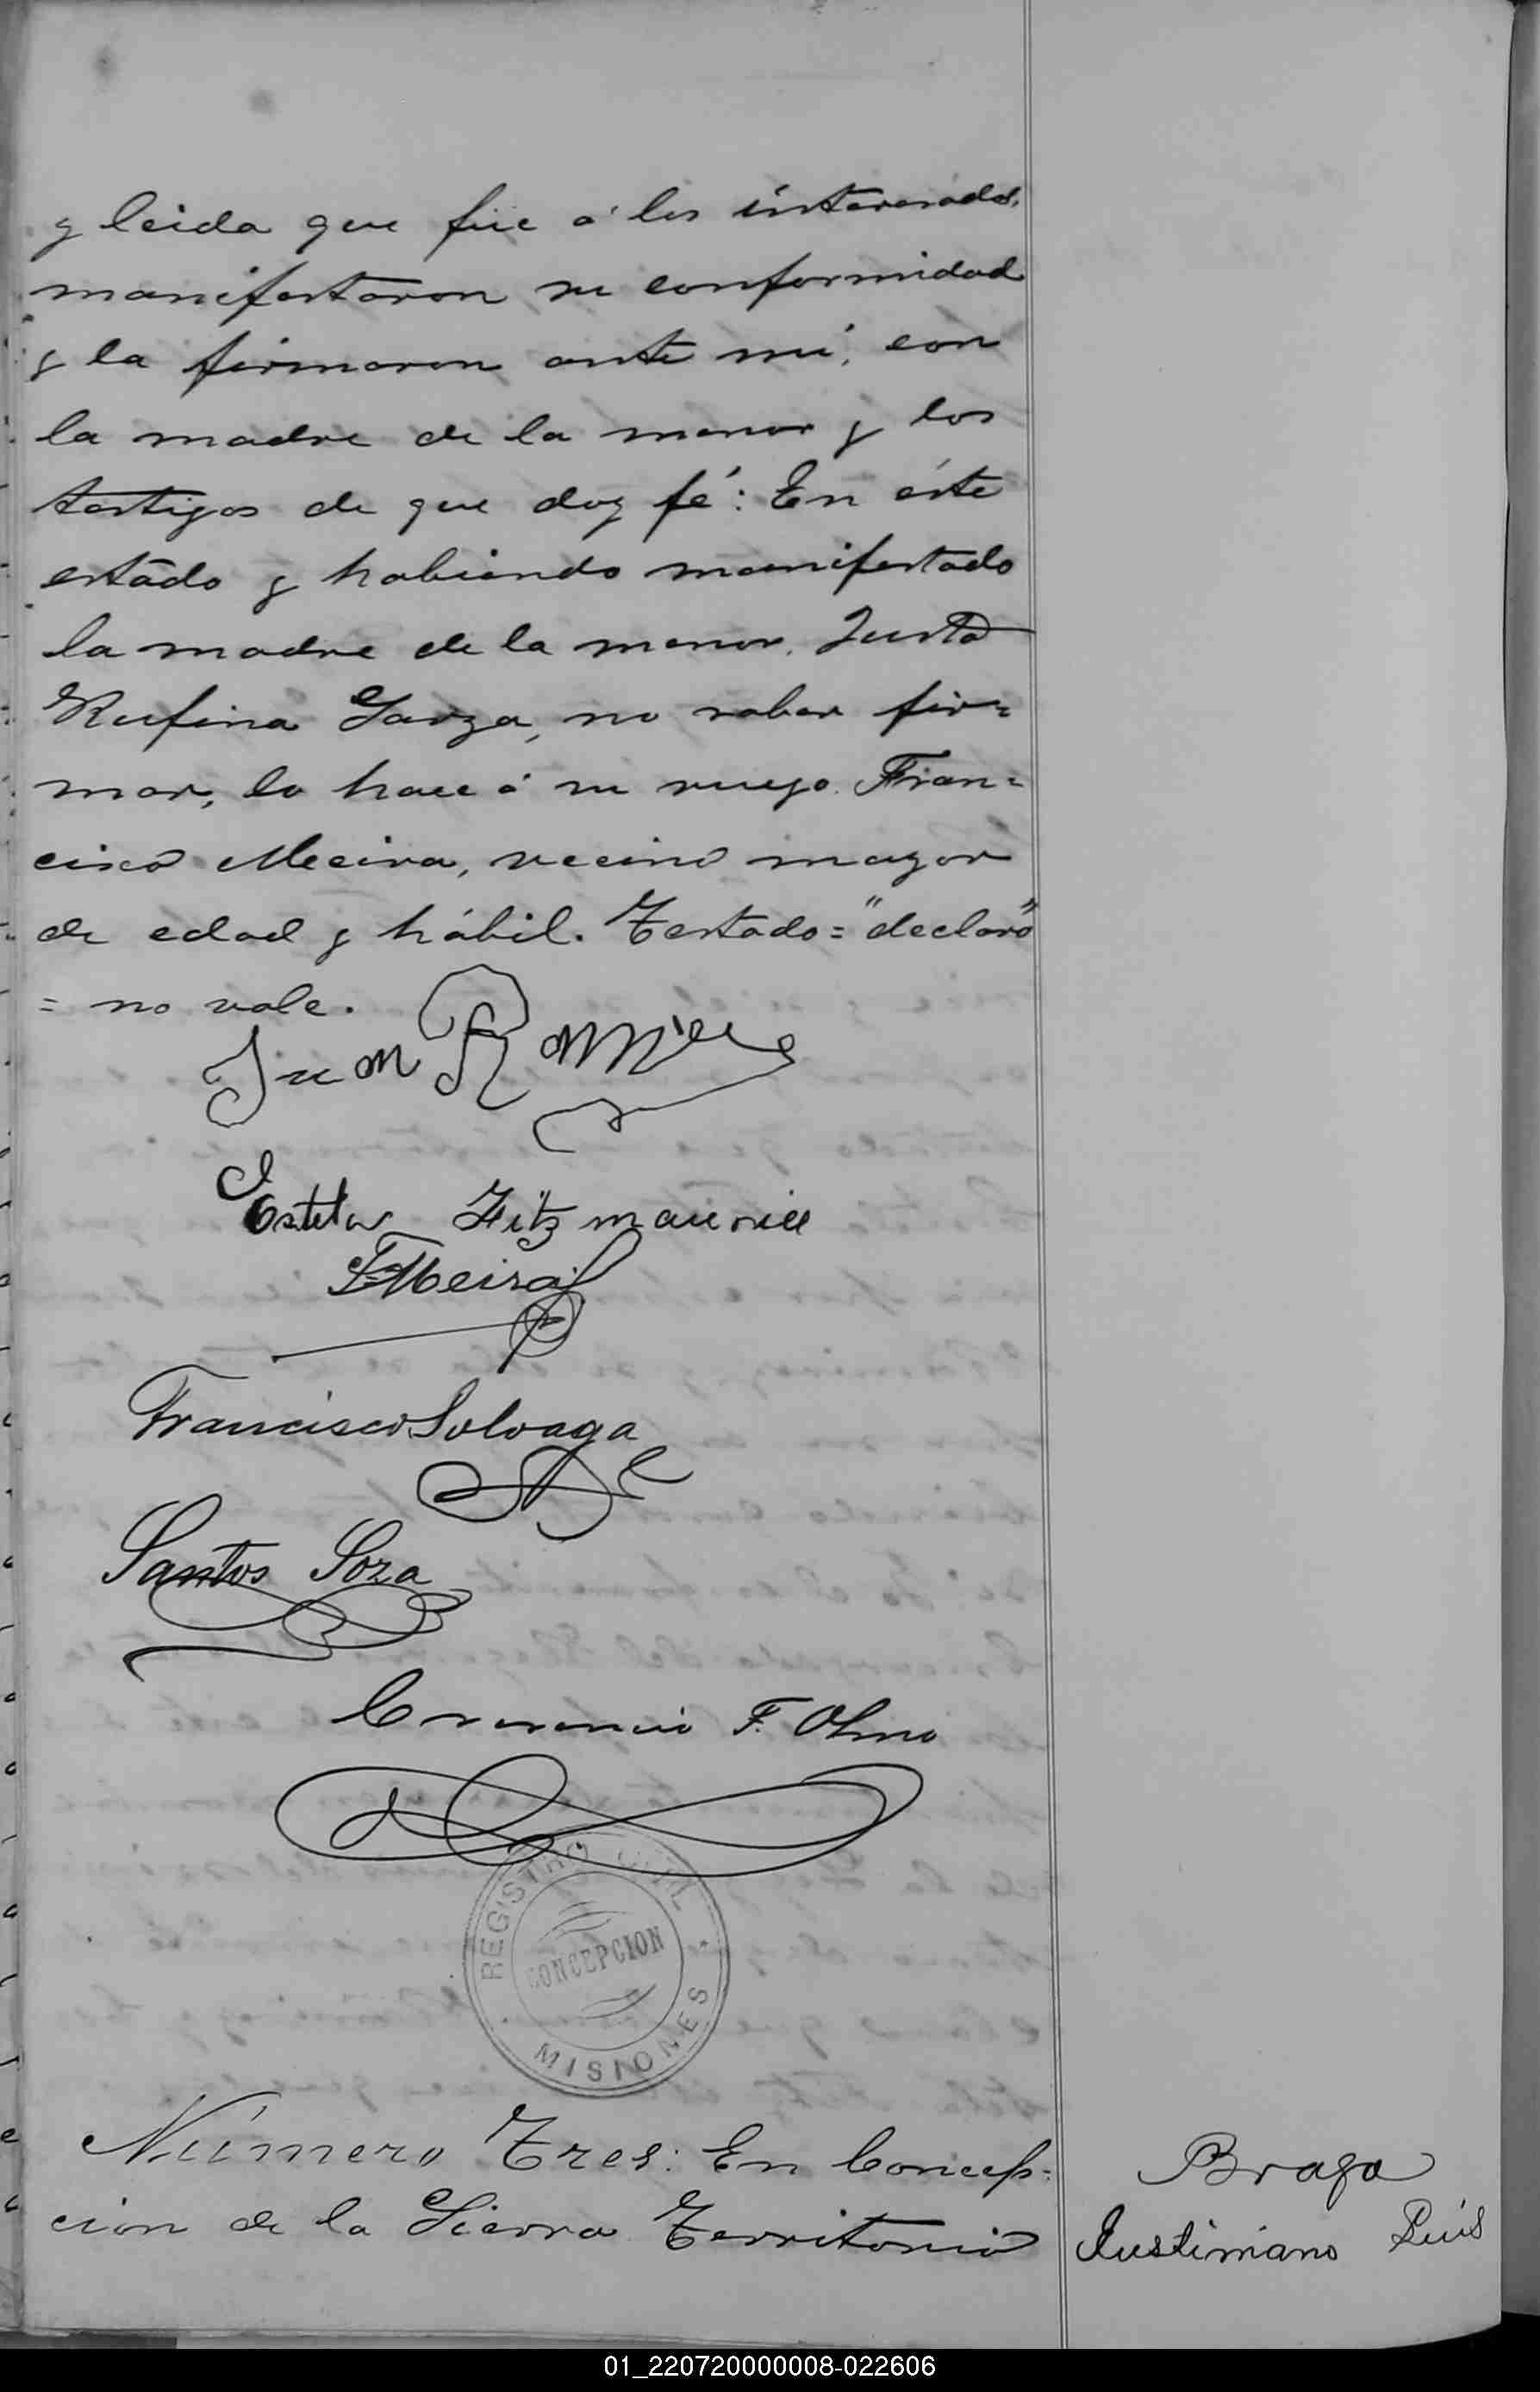 y leida que fue á los interesados,
manifestaron su conformidad
y la firmaron ante mi, con
la madre de la menor y los
testigos de que doy fé: En éste
estado y habiendo manifestado
la madre de la menor, Justa
Rufina Garza, no saber fir=
mar, lo hace á su ruego Fran=
cisco Meeira, vecino mayor
de edad y hábil. Testado= "declaró"
= no vale.
Juan Ramirez
Estela Fitz maurice
F Meira
Francisco Solvaga
Santos Soza
F. Olmo
REGISTRO CIVIL
CONCEPCION
MISIONES
Número Tres: En Concep=
cion de la Sierra Territorio
Braga
Justiniano Luis
01_220720000008-022606